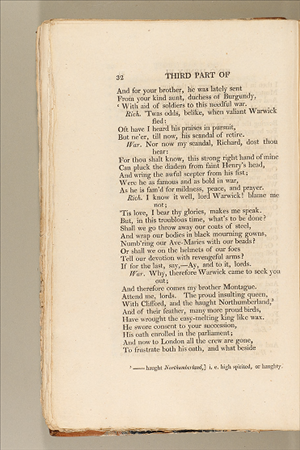 32 THIRD PART OF
And for your brother, he was lately sent
From your kind aunt, duchess of Burgundy,
‘ With aid of soldiers to this needful war.
Rich. 'Twas odds, belike, when valiant Warwick
fled:
Oft have I heard his praises in pursuit,
But ne'er, till now, his scandal of retire.
War. Nor now my scandal, Richard, dost thou
hear:
For thou shalt know, this strong right hand of mine
Can pluck the diadem from faint Henry's head,
And wring the awful scepter from his fist;
Were he as famous and as bold in war,
As he is fam'd for mildness, peace, and prayer.
Rich. I know it well, lord Warwick: blame me
not;
'Tis love, I bear thy glories, makes me speak.
But, in this troublous time, what's to be done?
Shall we go throw away our coats of steel,
And wrap our bodies in black mourning gowns,
Numb'ring our Ave-Maries with our beads?
Or shall we on the helmets of our foes
Tell our devotion with revengeful arms?
If for the last, say,—Ay, and to it, lords.
War. Why, therefore Warwick came to seek you
out;
And therefore comes my brother Montague.
Attend me, lords. The proud insulting queen,
With Clifford, and the haught Northumberland,
And of their feather, many more proud birds,
Have wrought the easy-melting king like wax.
He swore consent to your succession,
His oath enrolled in the parliament;
And now to London all the crew are gone,
To frustrate both his oath, and what beside
—— haught Northumberland,] i. e. high spirited, or haughty.